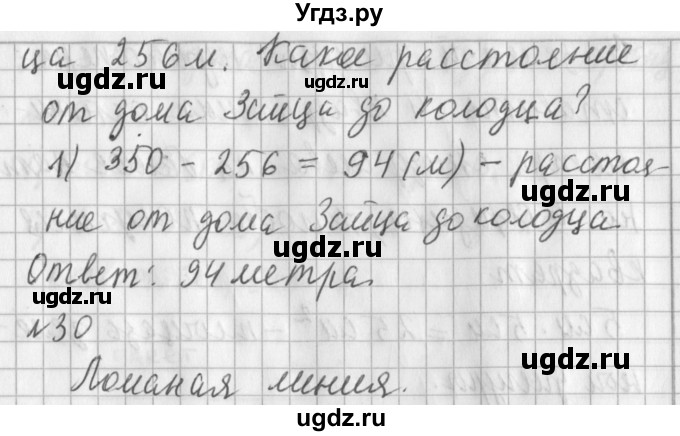 Угдз.ру
ца 256 м. Какое расстояние
от дома Зайца до колодца?
1) 350 - 256 = 94 (м) - расстоя-
ние от дома Зайца до колодца
Ответ: 94 метра.
№30
Ломаная линия.
ugdz.ru
ugdz.ru
ugdz.ru
ugdz.ru
ugdz.ru
ugdz.ru
ugdz.ru
ugdz.ru